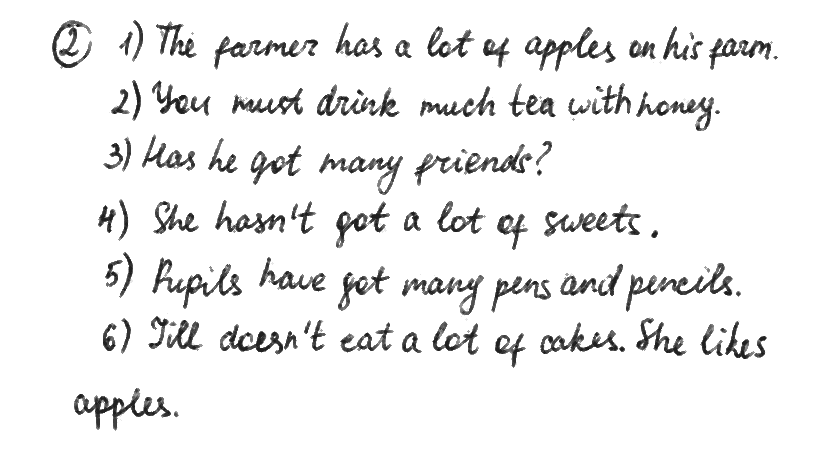 ② 1) The farmer has a lot of apples on his farm.
2) You must drink much tea with honey.
3) Has he got many friends?
4) She hasn't got a lot of sweets.
5) Pupils have got many pens and pencils.
6) Jill doesn't eat a lot of cakes. She likes
apples.